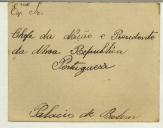 Exmo Sr.
Chefe da Nação e Presidente
da Nova Republica
Portuguesa
Palacio de Belem